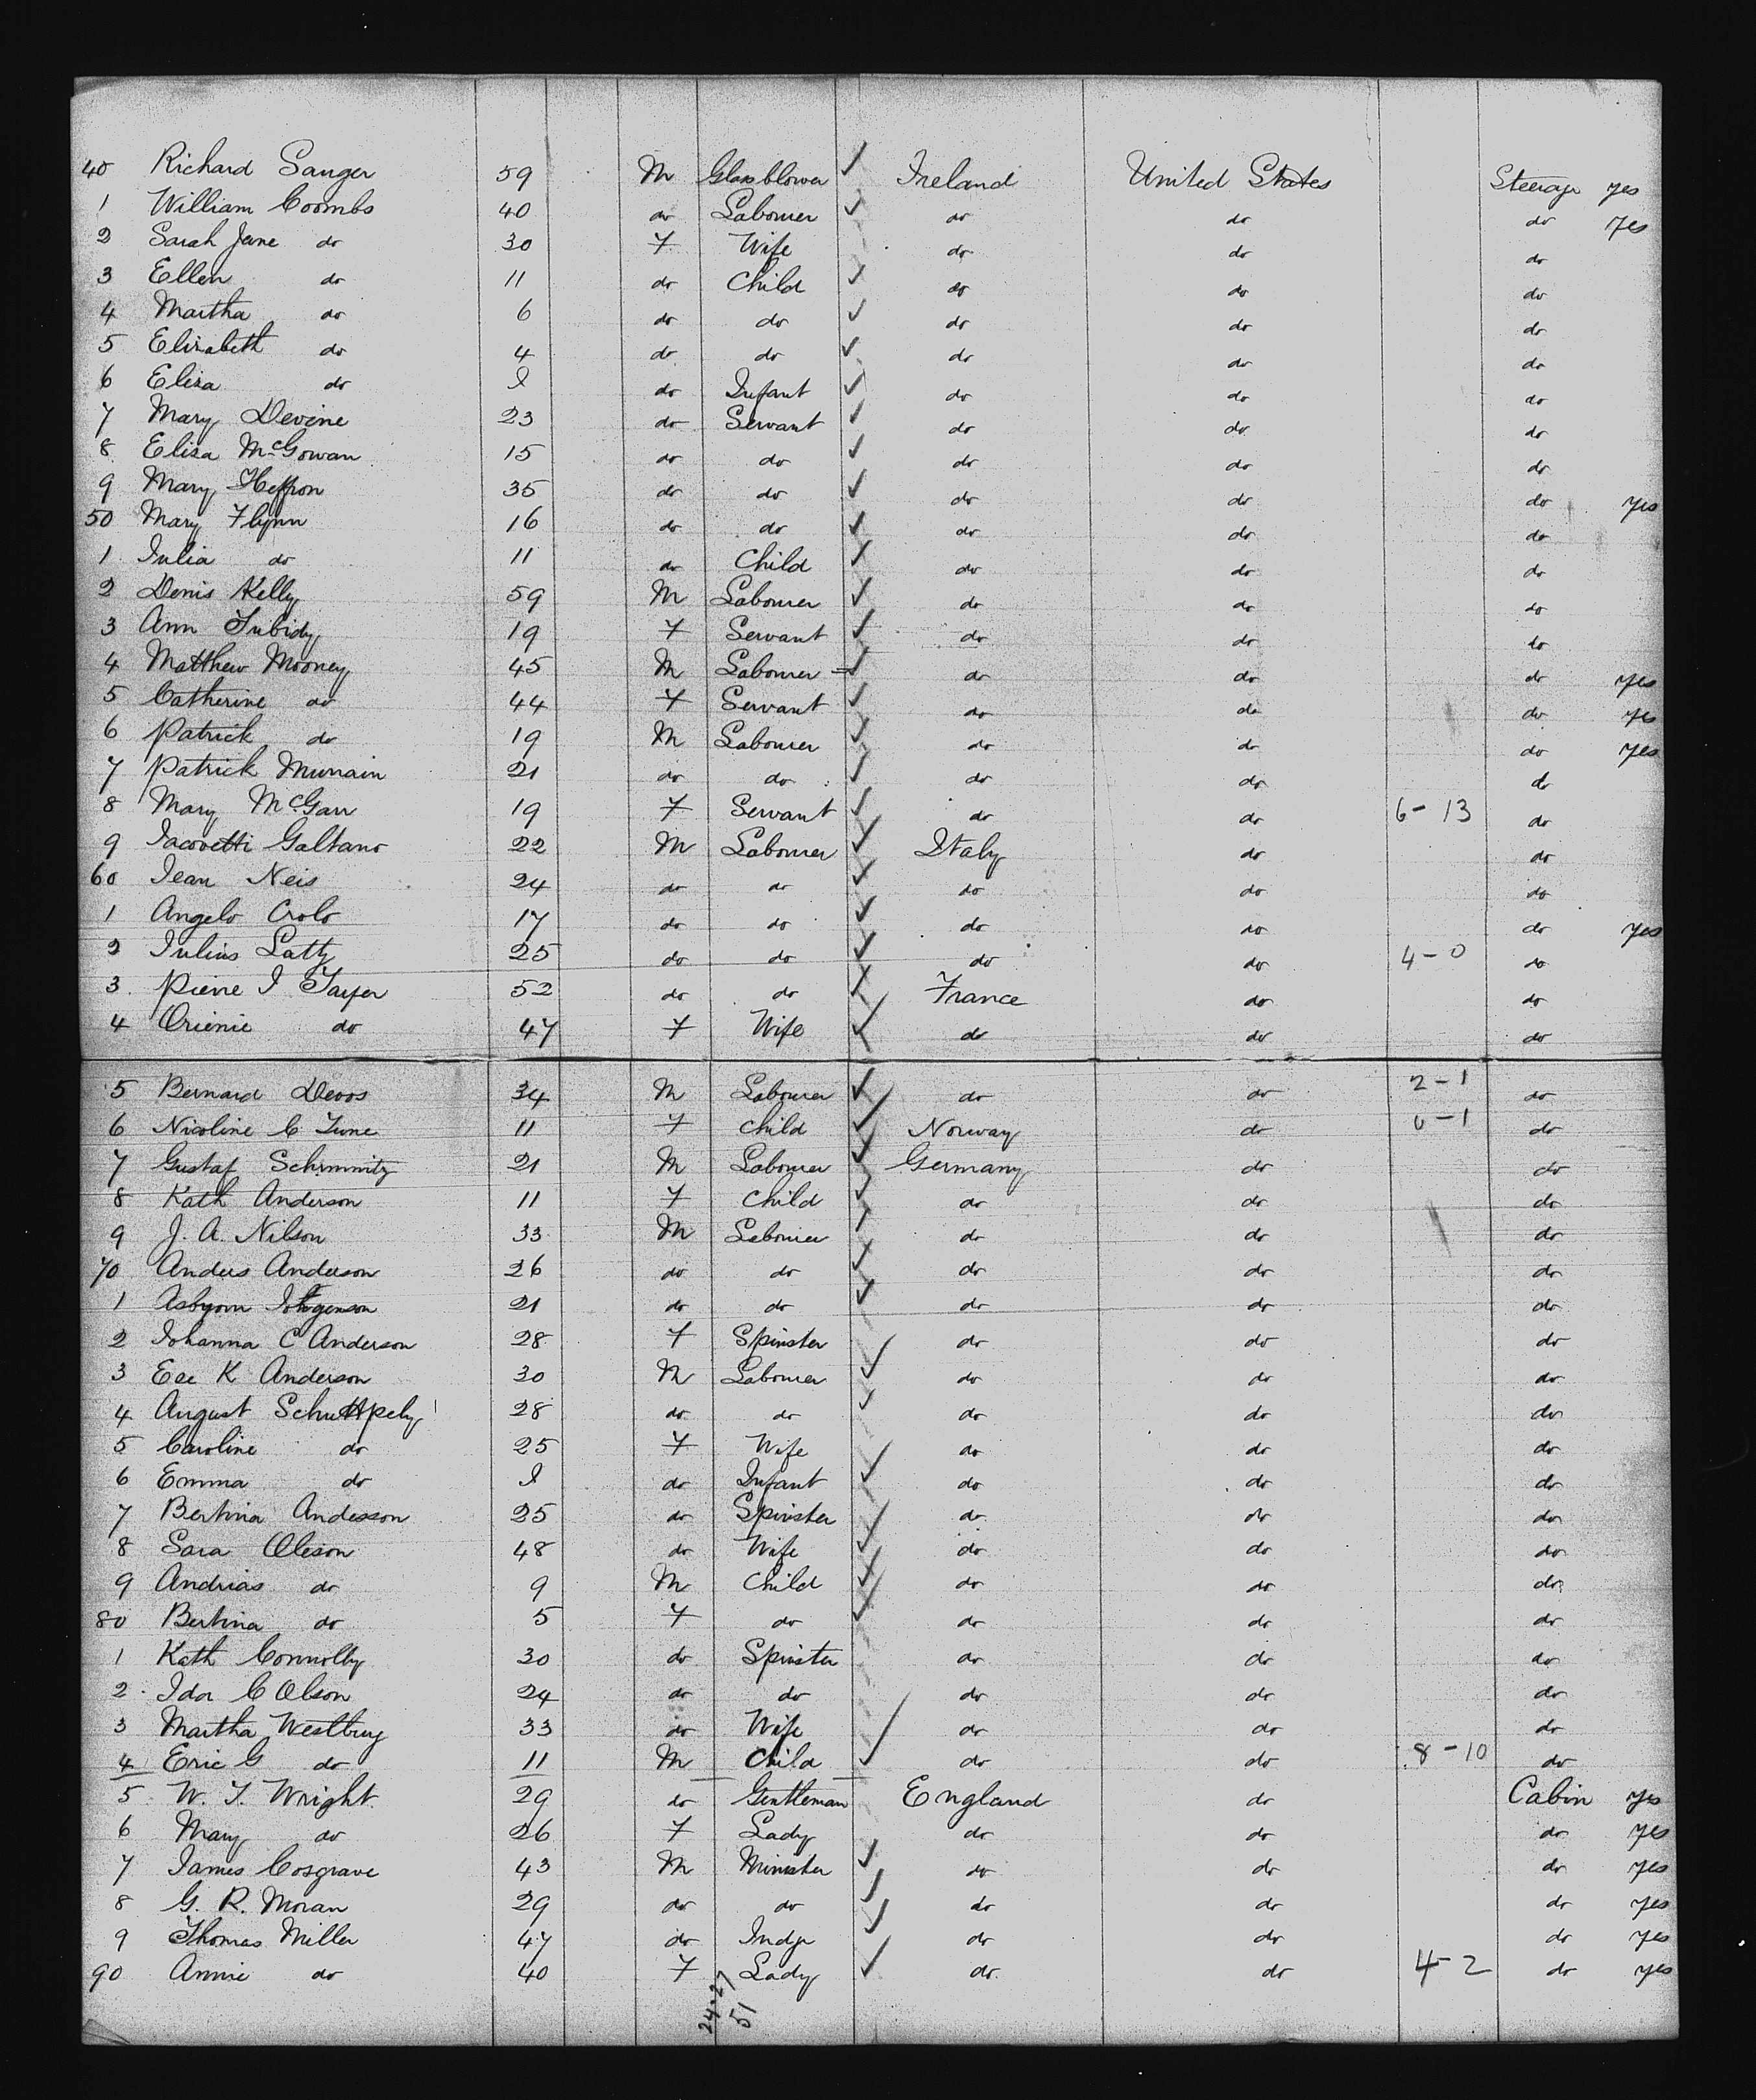 40 Richard Sanger 59 M Glassblower Ireland United States Steerage yes
1 William Coombs 40 do Labourer do do do yes
2 Sarah Jane do 30 F Wife do do do
3 Ellen do 11 do Child do do do
4 Martha do 6 do do do do do
5 Elizabeth do 4 do do do do do
6 Eliza do do Infant do do do
7 Mary Devine 23 do Servant do do do
8 Eliza McGowan 15 do do do do do
9 Mary Heffron 35 do do do do do yes
50 Mary Flynn 16 do do do do do
1 Julia do 11 do Child do do do
2 Denis Kelly 59 M Labourer do do do
3 Ann Tubidy 19 F Servant do do do
4 Matthew Mooney 45 M Labourer do do do yes
5 Catherine do 44 F Servant do do do yes
6 Patrick do 19 M Labourer do do do yes
7 Patrick Murrain 21 do do do do do
8 Mary McGarr 19 F Servant do do 6-13 do
9 Iacovetti Galtano 22 M Labourer Italy do do
60 Jean Neis 24 do do do do do
1 Angelo Crolo 17 do do do do do yes
2 Julius Latty 25 do do do do 4-0 do
3 Pierre J 52 do do France do do
4 Orienie do 47 F Wife do do do
5 Bernard Devos 34 M Labourer do do 2-1 do
6 Nicoline C Tune 11 F Child Norway do 0-1 do
7 Gustaf Schimmitz 21 M Labourer Germany do do
8 Kath Anderson 11 F Child do do do
9 J. A. Nilson 33 M Labourer do do do
70 Anders Anderson 26 do do do do do
1 Asbyorn 21 do do do do do
2 Johanna C Anderson 28 F Spinster do do do
3 K Anderson 30 M Labourer do do do
4 August 28 do do do do do
5 Caroline do 25 F Wife do do do
6 Emma do do Infant do do do
7 Bertina Andesson 25 do Spinster do do do
8 Sara Oleson 48 do Wife do do do
9 Andrias do 9 M Child do do do
80 Bertina do 5 F do do do do
1 Kath Connolly 30 do Spinster do do do
2 Ida C Olson 24 do do do do do
3 Martha Westbury 33 do Wife do do do
4 Eric G do 11 M Child do do 8-10 do
5 W. T. Wright 29 do Gentleman England do Cabin yes
6 Mary do 26 F Lady do do do yes
7 James Cosgrave 43 M Minister do do do yes
8 G. R. Moran 29 do do do do do yes
9 Thomas Miller 47 do Judge do do do yes
90 Annie do 40 F Lady do do 4-2 do yes
24-27
51